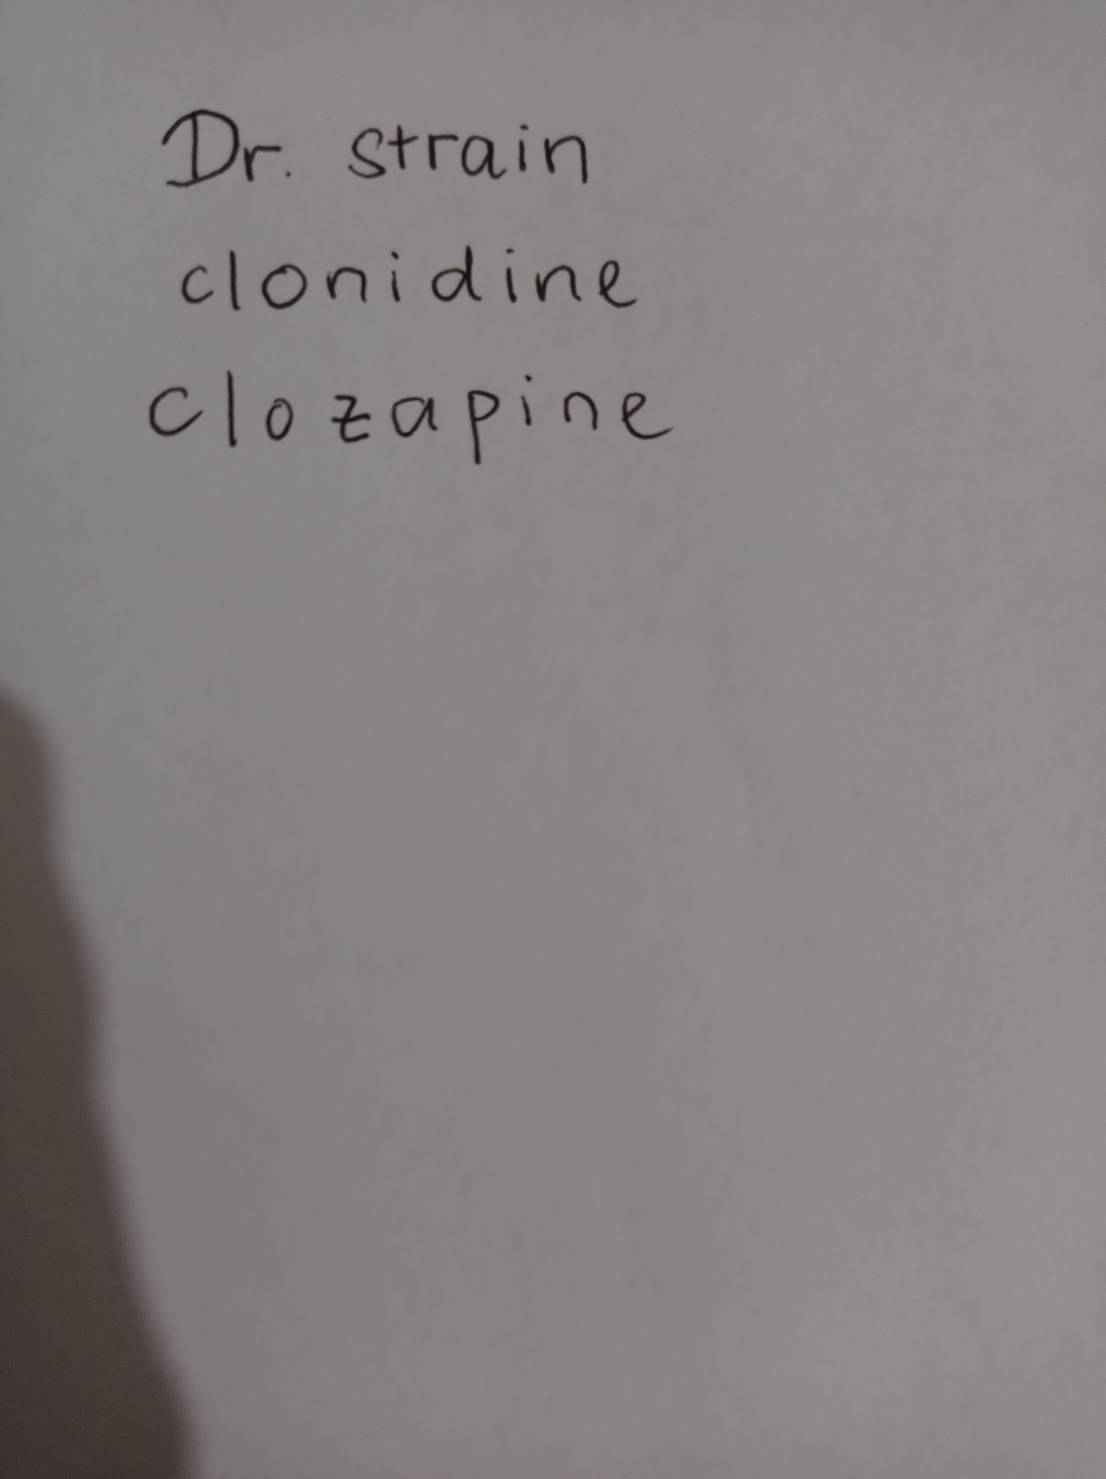 Dr. strain
clonidine
clozapine